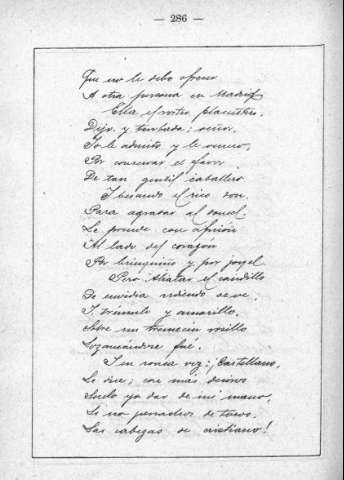 — 286 —
Que no le debo ofrecer
A otra persona en Madrid
Ella el rostro placentero,
Dijo, y turbada: señor,
Yo le admito y le venero,
Por conservar el favor
De tan gentil caballero
Y besando el rico don,
Para agradar al doncel,
Le prende con afición
Al lado del corazón
Por brinquiño y por joyel
Pero Aliatar el caudillo
De envidia ardiendo se ve,
Y trémulo y amarillo,
Sobre un tremecén rosillo
Lozaneándose fué.
Y en ronca voz: ¡Castellano,
Le dice; con más decoros
Suelo yo dar de mi mano,
Si no penachos de toros,
Las cabezas de cristiano!